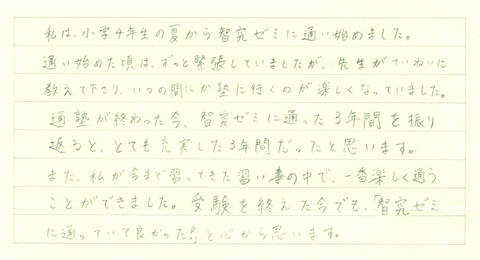 私は、小学4年生の夏から智究ゼミに通い始めました。
通い始めた頃は、ずっと緊張していましたが、先生がていねいに
教えて下さり、いつの間にか塾に行くのが楽しくなっていました。
通塾が終わった今、智究ゼミに通った3年間を振り
返ると、とても充実した3年間だったと思います。
また、私が今まで習ってきた習い事の中で、一番楽しく通う
ことができました。受験を終えた今でも、「智究ゼミ
に通っていて良かった!」と心から思います。